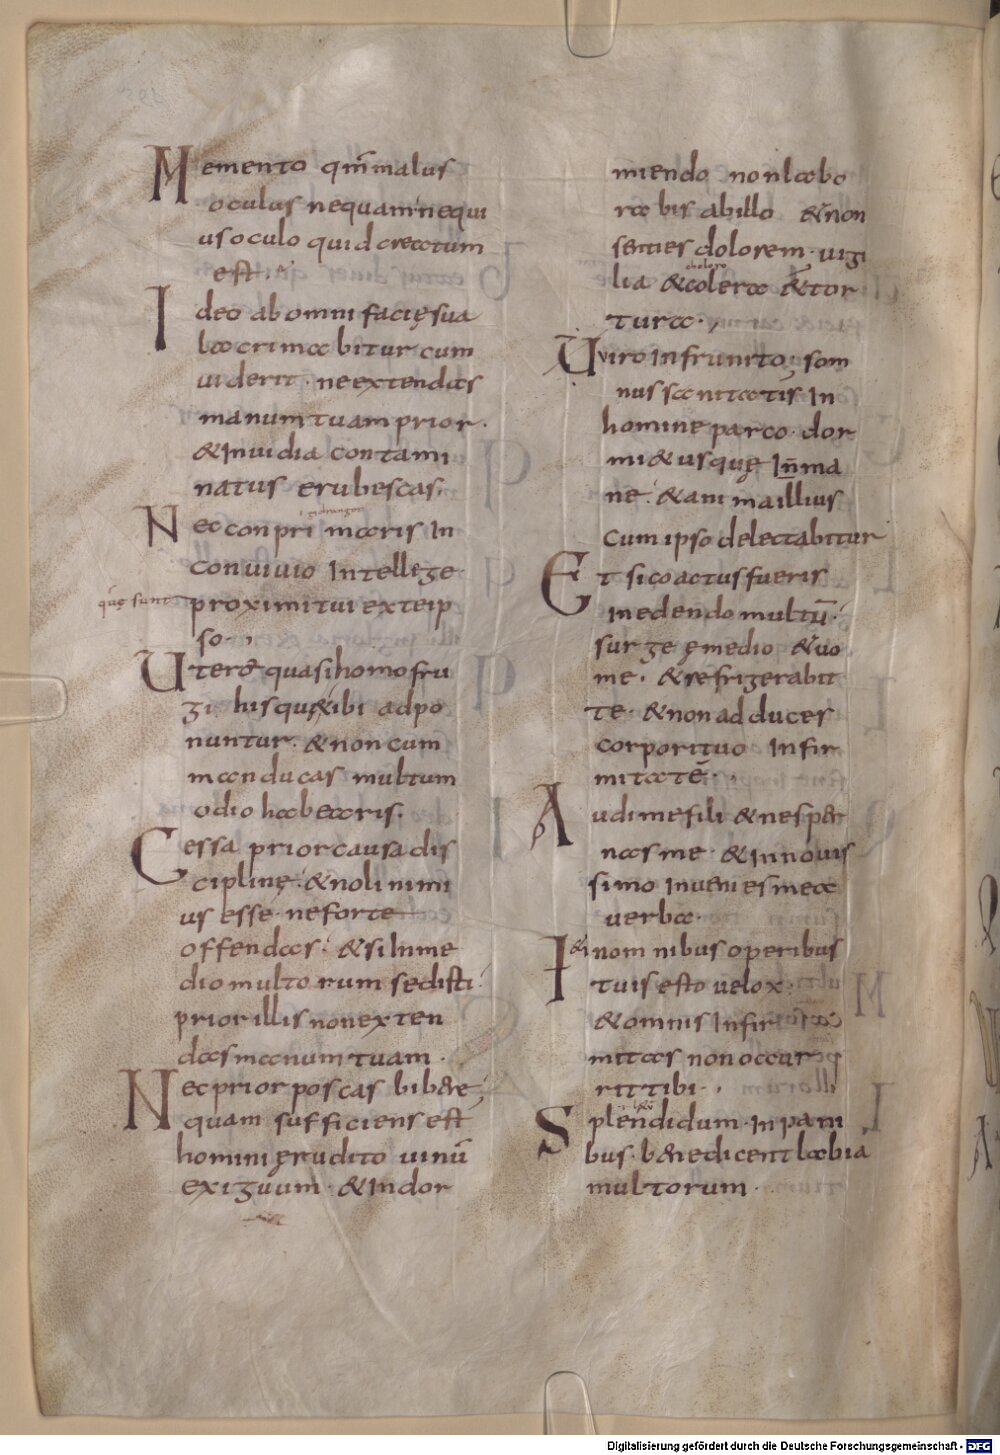 Memento qm̅ malus
oculus nequam nequi
us oculo quid creatum
est.
Ideo ab omni facię sua
lacrimabitur cum
uiderit. ne extendas
manum tuam prior.
& Inuidia contami
natus erubescas.
Nec conprimaris In
conuiuio Intellege
quę sunt proximi tui ex te ip
so.
Utere quasi homo fru
gi his quę tibi adpo
nuntur. & non cum
manducas multum
odio habearis.
Cessa prior causa dis
ciplinę. & noli nimi
us esse. ne forte
offendas. & si In me
dio multorum sedisti.
prior illis non exten
das manum tuam.
Nec prior poscas bibere,
quam sufficiens est
homini ęrudito uinū
exiguum. & In dor
miendo non labo
rabis ab illo & non
senties dolorem. uigi
lia & colera & tor
tura.
Uiro Infrunito; som
nus sanitatis In
homine parco. dor
mi& usquę In ma
ne. & anima illius
cum ipso delectabitur
Et si coactus fueris
In edendo multū.
surge ę medio & uo
me. & refrigerabit
te. & non adduces
corpori tuo Infir
mitatē.
Audi me fili & ne sper
nas me & In nouis
simo Inuenies mea
uerba.
& In omnibus operibus
tuis esto uelox.
& omnis Infir
mitas non occur
rit tibi.
Splendidum. In pani
bus. benedicent labia
multorum.
Digitalisierung gefördert durch die Deutsche Forschungsgemeinschaft - DFG